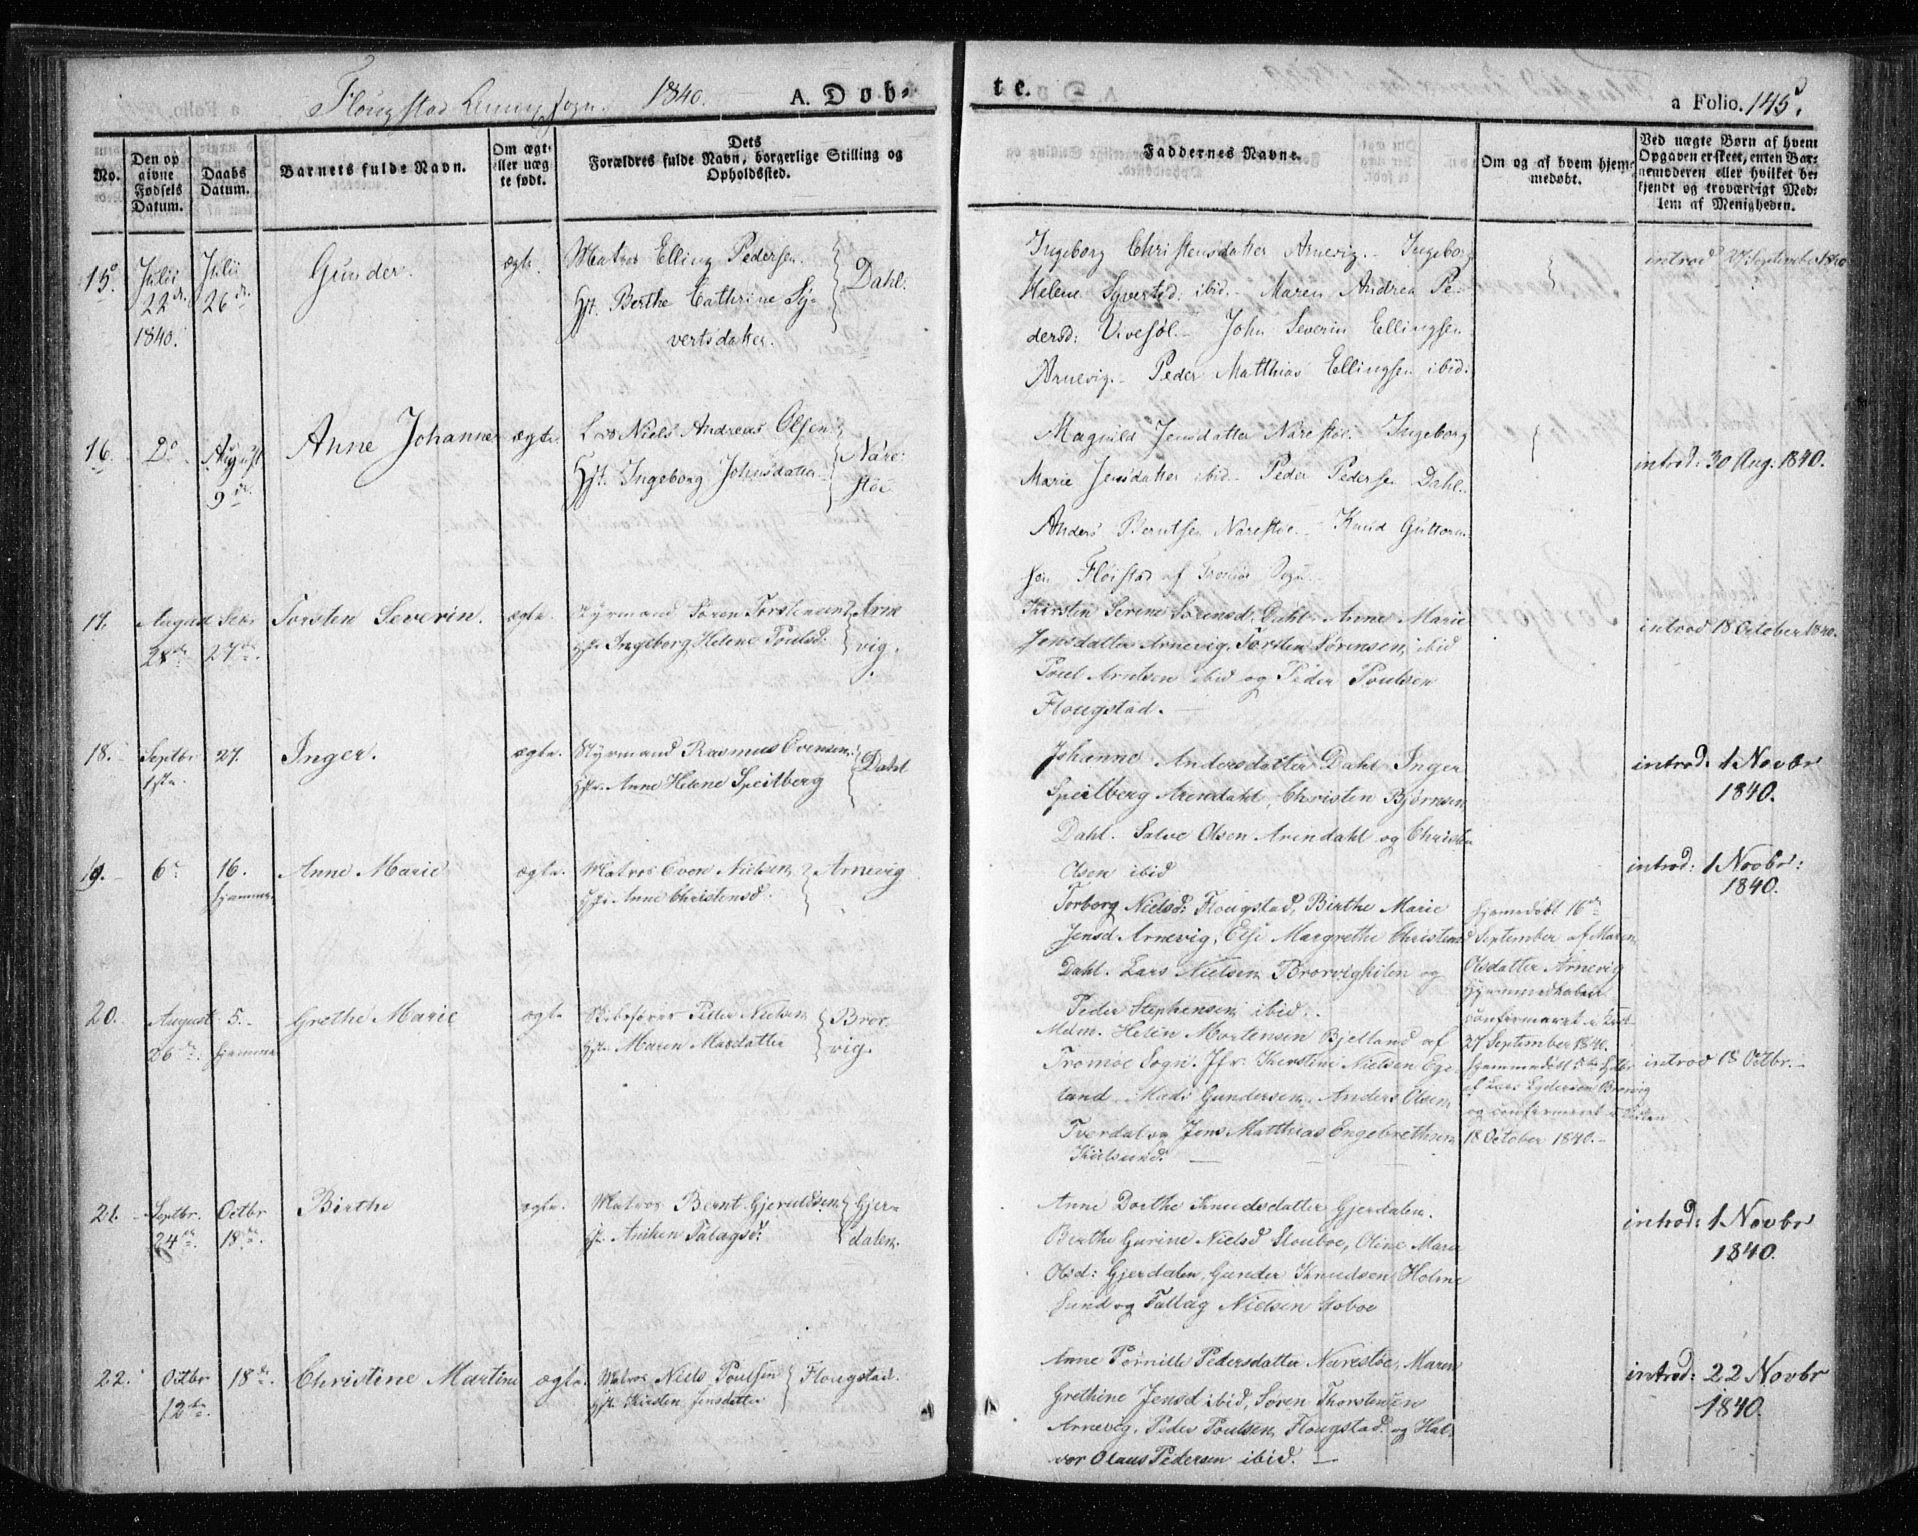 Flougstad Sogn. 1840. A. Døb-
te.
a Folio. 145.
No.
Den op
givne
Fødsels
Datum.
Daabs
Datum.
Barnets fulde Navn.
Om ægt-
eller uæg
te født.
Dets
Forældres fulde Navn, borgerlige Stilling og
Opholdssted.
Faddernes Navne.
Om og af hvem hjem-
medøbt.
Ved uægte Børn af hvem
Opgaven er skeet, enten Bar-
nemoderen eller hvilket be-
kjendt og troværdigt Med-
lem af Menigheden.
15. Julii
22
1840.
Julii
26
Gunder.
ægte.
Matros Elling Pedersen
Hst. Berthe Cathrine Sy-
vertsdatter.
Dahl.
Ingeborg Christensdatter Arnevig. Ingeborg
Helene Syvertsd. ibid. Maren Andrea Pe-
dersd: Vivesøl. John Severin Ellingsen
Arnevig. Peder Matthias Ellingsen ibid.
introd 27 September 1840
16.
August
9
Anne Johanne
ægte.
Niels Andreas Olsen
Hst. Ingeborg Johnsdatter
Nare-
støe
Magnild Jensdatter Narestøe. Ingeborg
Marie Jensdatter ibid. Peder Pedersen Dahl.
Anders Berntsen Narestøe. Knud Guttorm-
sen Fløistad af Tromøe Sogn.
introd: 30 Aug: 1840.
17. August
28de
27de.
Torsten Severin.
ægte.
Styrmand Søren Torstensen
Hst. Ingeborg Helene Poulsd:
Arne
vig.
Kirsten Serine Sørensd. Dahl. Anne Marie
Jensdatter Arnevig. Torsten Sørensen ibid
Poul Arntsen ibid og Peder Poulsen
Flougstad.
introd 18 October 1840.
18. Septbr
1ste
27.
Inger.
ægte.
Styrmand Rasmus Evensen
Hst. Anne Helene Speilberg
Dahl
Johanne Andersdatter Dahl. Inger
Speilberg Arendahl, Christen Bjørnsen
Dahl. Salve Olsen Arendahl og Christen
Olsen ibid
introd: 1 Novbr
1840.
19. 6
16.
hjemme.
Anne Marie
ægte.
Matros Even Nielsen
Hst. Anne Christensd.
Arnevig
Torborg Nielsd: Flougstad, Birthe Marie
Jensd Arnevig, Else Margrethe Christens
Dahl. Lars Nielsen Brorvigkilen og
Peder Stephensen ibid.
hjemmedøbt 16de
September af Maren
Olsdatter Arnevig
confirmeret
27 September 1840.
introd: 1 Novbr:
1840.
20. August
26de.
5.
hjemme
Grethe Marie
ægte
Skibsfører Peder Nielsen
Hst. Maren Masdatter
Bror-
vig.
Mdm. Helen Mortensen Bjelland af
Tromøe Sogn. Jfr. Kirstine Nielsen Ege-
land. Mads Gundersen. Anders Olsen
Tverdal og Jens Matthias Engebrethsen
Kiilsund.
hjemmedøbt 5te
af Lars Brovig
og confirmeret
18 October 1840.
introd 18 Octbr.
21. Septbr.
24de.
Octbr
18de.
Birthe
ægte.
Matros Bernt Gjeruldsen
Hst. Aniken Talagsd:
Gjer-
dalen.
Anne Dorthe Knudsdatter Gjerdalen.
Birthe Gurine Nielsd Stouboe, Oline Marie
Olsd: Gjerdalen, Gunder Knudsen Holme
sund og Tallag Nielsen Stoboe
introd: 1 Novbr
1840.
22. Octbr
12te.
18de.
Christine Martine
ægte.
Matros Niels Poulsen
Hst. Kirsten Jensdatter
Flougstad.
Anne Pernille Pedersdatter Narestøe, Maren
Grethine Jensd ibid, Søren Thorstensen
Arnevig. Peder Poulsen Flougstad og Hal-
vor Olaus Pedersen ibid.
introd: 22 Novbr
1840.